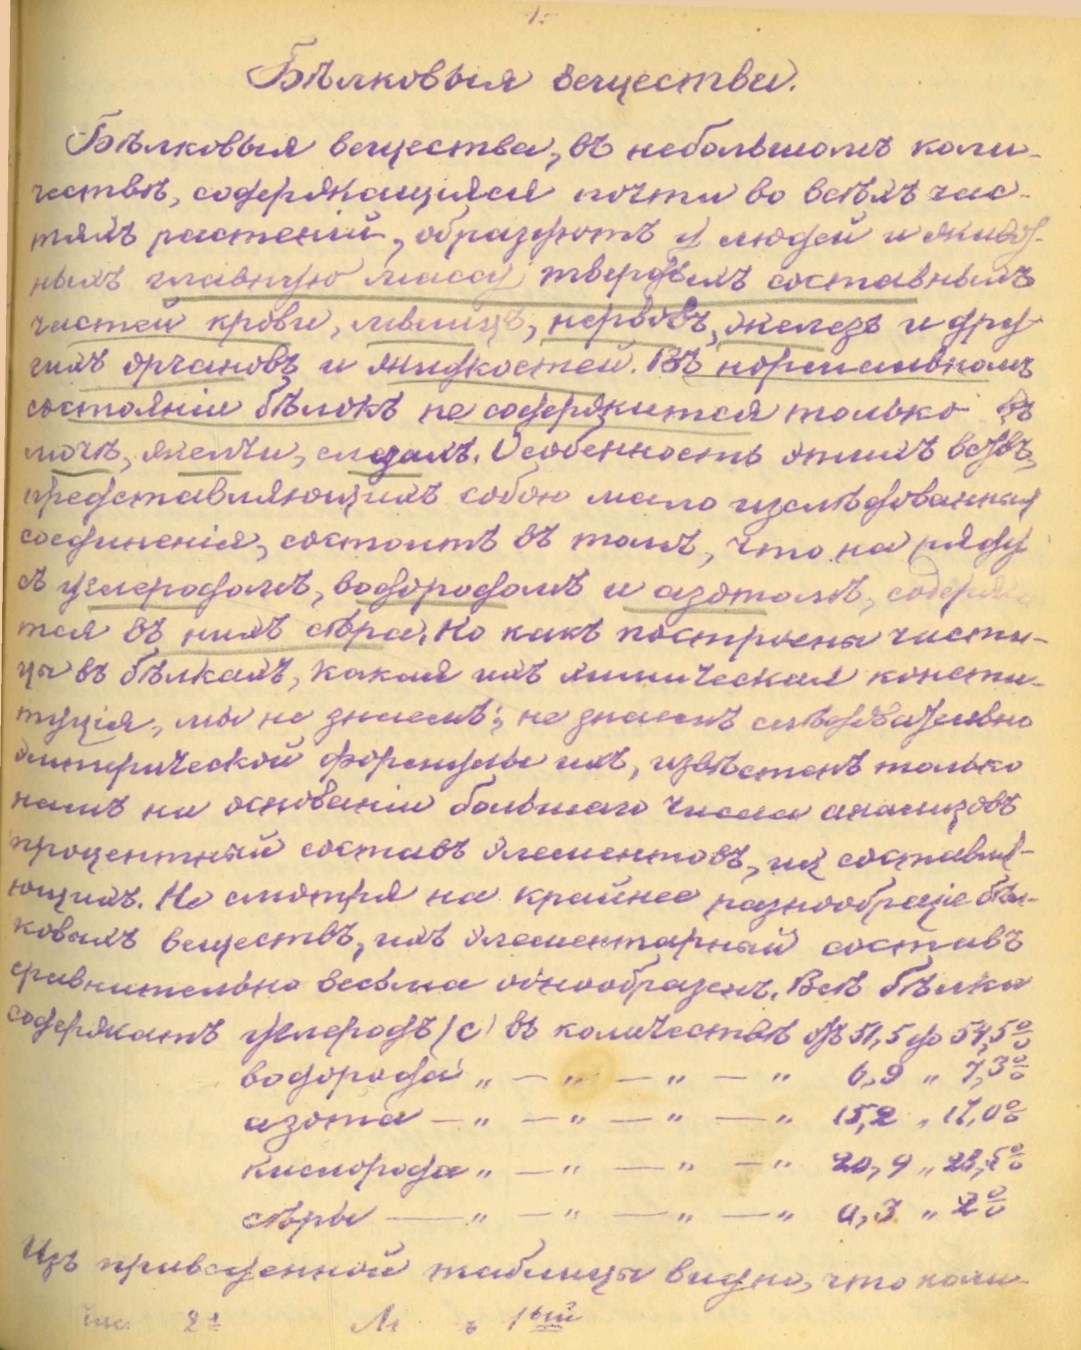 1.
Бѣлковыя вещества.
Бѣлковыя вещества, въ небольшомъ коли-
чествѣ, содержащіяся почти во всѣхъ час-
тяхъ растеній, образуютъ у людей и живот-
ныхъ главную массу твердыхъ составныхъ
частей крови, мышцъ, нервовъ, железъ и дру-
гихъ органовъ и жидкостей. Въ нормальномъ
состояніи бѣлокъ не содержится только въ
мочѣ, желчи, слезахъ. Особенность этихъ вещвъ,
представляющихъ собою мало изслѣдованныя
соединенія, состоитъ въ томъ, что на ряду
съ углеродомъ, водородомъ и азотомъ, содержа
тся въ нихъ сѣра. Но какъ построены части-
цы въ бѣлкахъ, какая ихъ химическая консти-
туція, мы не знаемъ; не знаемъ слѣдовательно
эмпирической формулы ихъ, извѣстенъ только
намъ на основаніи большаго числа анализовъ
процентный составъ элементовъ, ихъ составля-
ющихъ. Не смотря на крайнее разнообразіе бѣл-
ковыхъ веществъ, ихъ элементарный составъ
сравнительно весьма однообразенъ. Всѣ бѣлки
содержатъ углеродъ (С) въ количествѣ отъ 51,5 до 54,5%
водорода „ — „ — „ — „ 6,9 „ 7,3%
азота — „ — „ — „ — „ 15,2 „ 17,0%
кислорода „ — „ — „ — „ 20,9 „ 23,5%
сѣры — „ — „ — „ — „ 0,3 „ 2%
Изъ приведенной таблицы видно, что коли-
2й 1ый